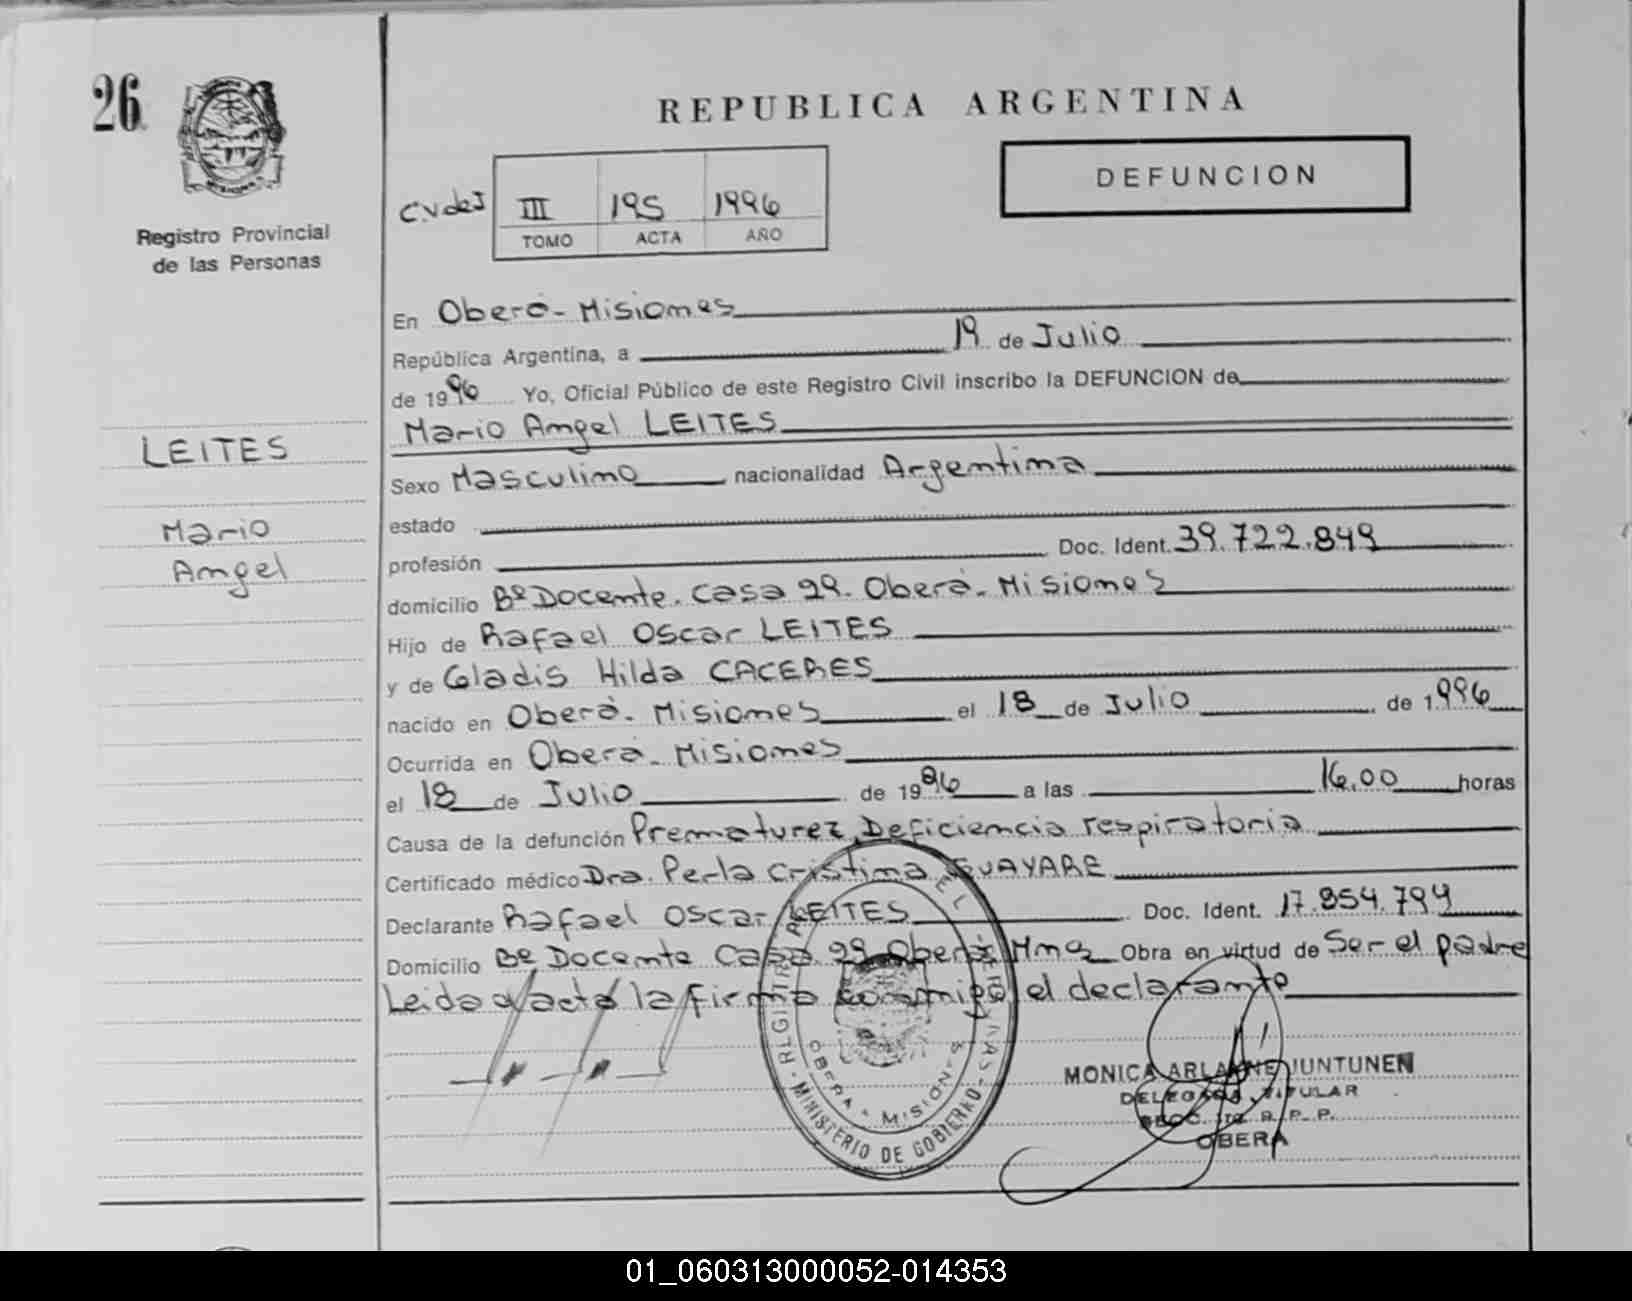 26
Registro Provincial
de las Personas
LEITES
Mario
Angel
REPUBLICA ARGENTINA
DEFUNCION
III 195 1996
TOMO ACTA AÑO
En Oberá - Misiones
República Argentina, a 19 de Julio
de 1996 Yo, Oficial Público de este Registro Civil inscribo la DEFUNCION de
Mario Angel LEITES
Sexo Masculino nacionalidad Argentina
estado
profesión Doc. Ident. 39.722.849
domicilio Bº Docente. Casa 29. Oberá - Misiones
Hijo de Rafael Oscar LEITES
y de Gladis Hilda CACERES
nacido en Oberá - Misiones el 18 de Julio de 1996
Ocurrida en Oberá - Misiones
el 18 de Julio de 1996 a las 16,00 horas
Causa de la defunción Prematurez, Deficiencia respiratoria
Certificado médico Dra. Perla Cristina GUAYARE
Declarante Rafael Oscar LEITES Doc. Ident. 17.954.794
Domicilio Bº Docente Casa 29 Oberá Mnes Obra en virtud de Ser el padre
Leida el acta la firma conmigo el declarante
MINISTERIO DE GOBIERNO
OBERA - MISIONES
MONICA ARLAINE JUNTUNEN
DELEGADA TITULAR
SECC. 1ra. R. P. P.
OBERA
01_060313000052-014353